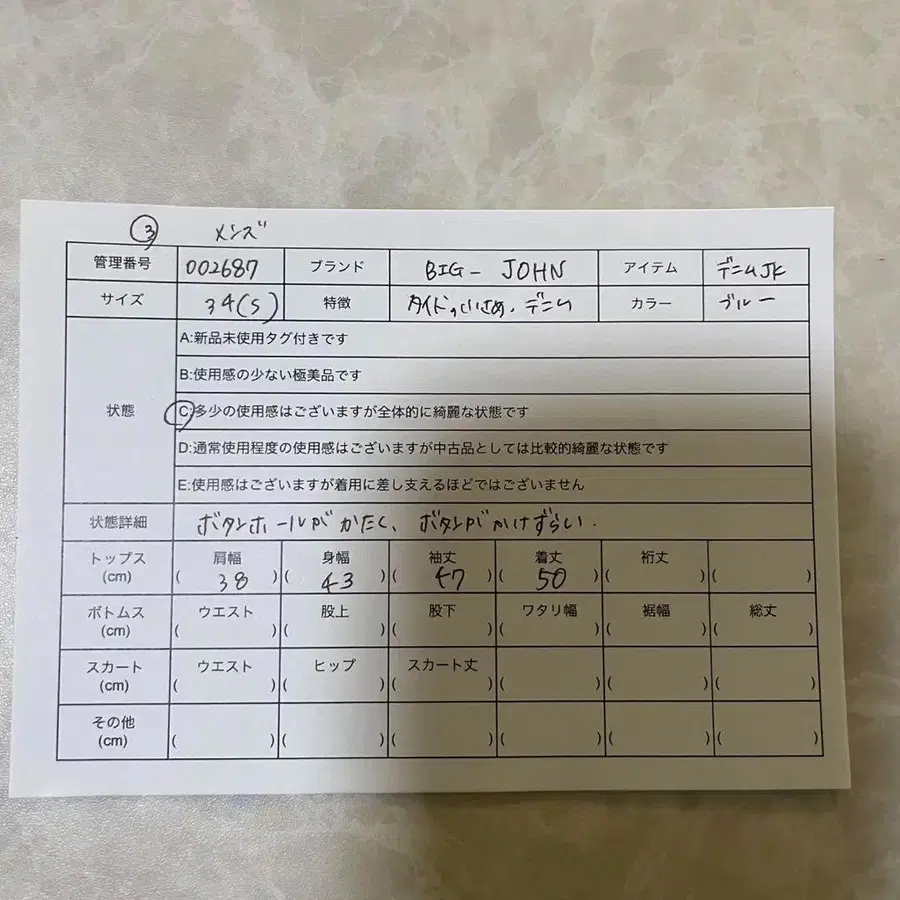 ③ メンズ
管理番号 002687 ブランド BIG- JOHN アイテム デニムJK
サイズ 34(S) 特徴 タイト。小さめ。デニム カラー ブルー
状態
A:新品未使用タグ付きです
B:使用感の少ない極美品です
C:多少の使用感はございますが全体的に綺麗な状態です
D:通常使用程度の使用感はございますが中古品としては比較的綺麗な状態です
E:使用感はございますが着用に差し支えるほどではございません
状態詳細 ボタンホールがかたく、ボタンがかけずらい.
トップス 肩幅 身幅 袖丈 着丈 裄丈
(cm) ( 38 ) ( 43 ) ( 47 ) ( 50 ) ( ) ( )
ボトムス ウエスト 股上 股下 ワタリ幅 裾幅 総丈
(cm) ( ) ( ) ( ) ( ) ( ) ( )
スカート ウエスト ヒップ スカート丈
(cm) ( ) ( ) ( ) ( ) ( ) ( )
その他
(cm) ( ) ( ) ( ) ( ) ( ) ( )